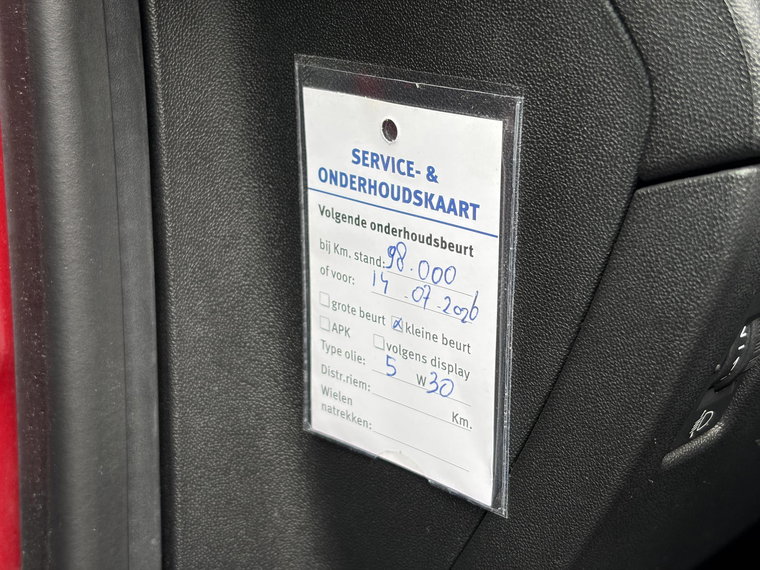 SERVICE- &
ONDERHOUDSKAART
Volgende onderhoudsbeurt
bij Km. stand: 98.000
of voor: 14-07-2026
grote beurt kleine beurt
APK volgens display
Type olie: 5 W 30
Distr.riem: Km.
Wielen
natrekken: